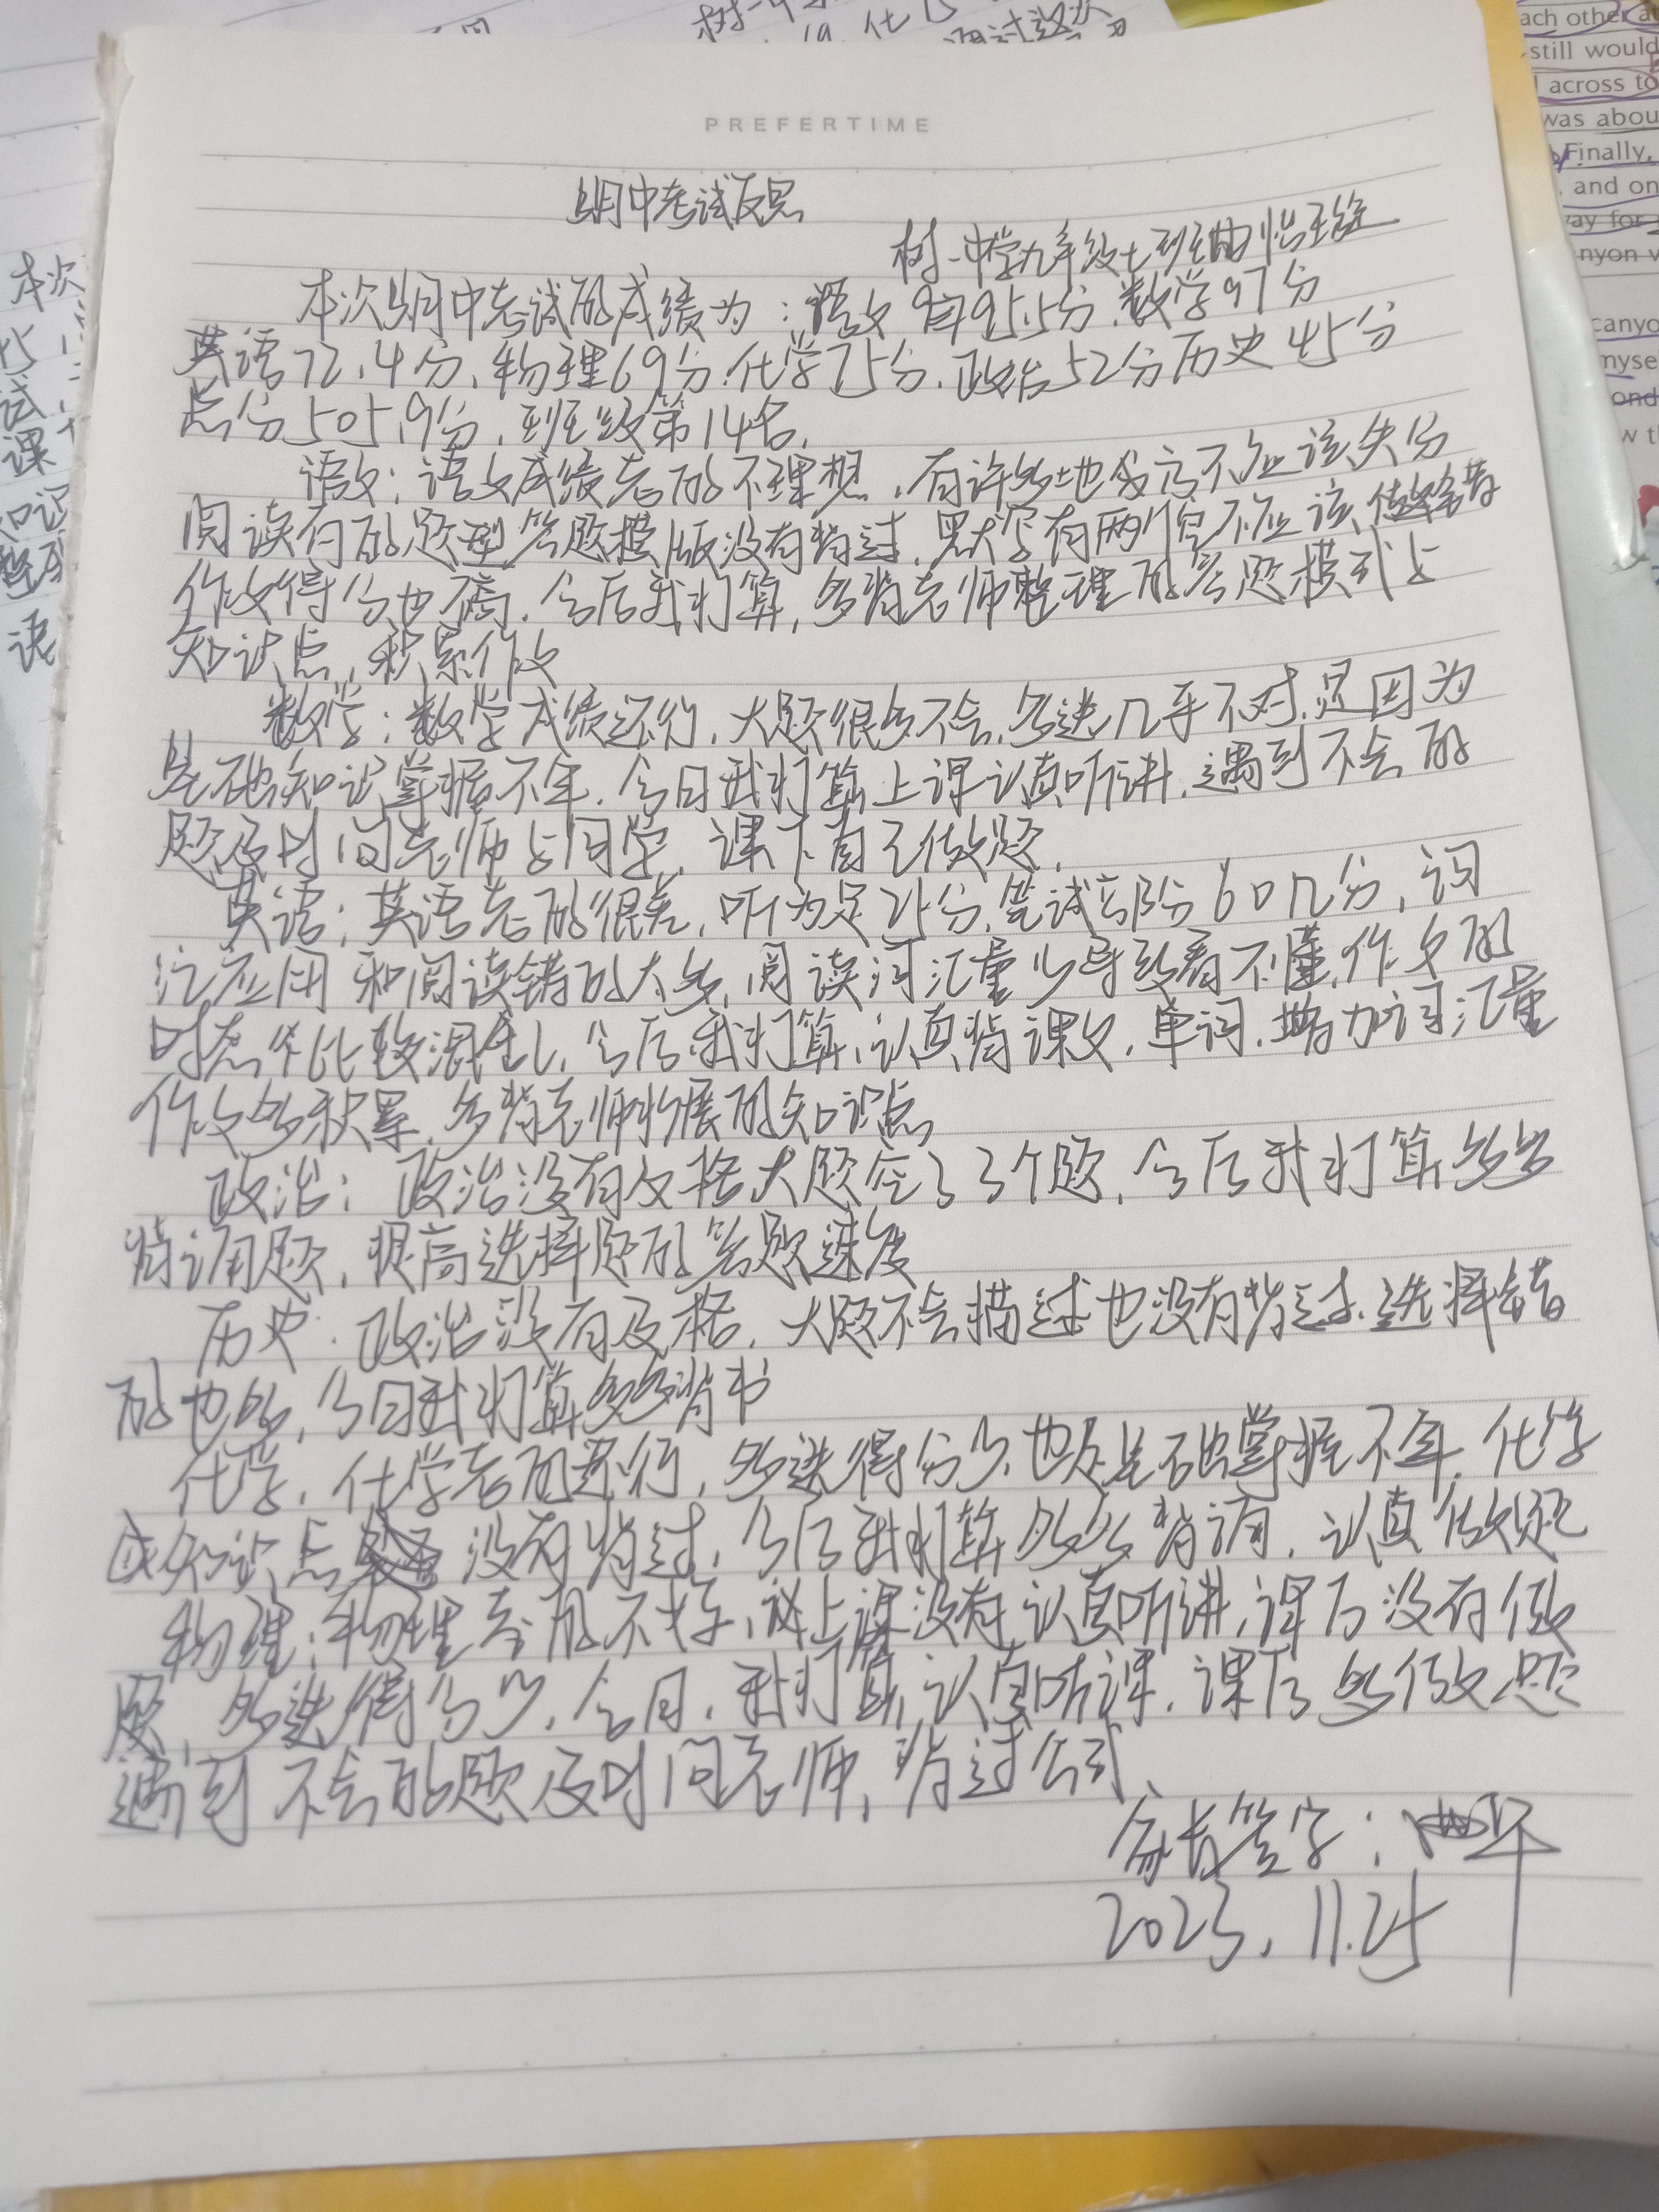 PREFERTIME
期中考试反思
树一中学九年级七班曲
本次期中考试的成绩为：语文95.5分、数学97分
英语72.4分、物理69分、化学75分、政治52分历史45分
总分505.9分，班级第14名，
语文：语文成绩考的不理想，有许多地方不应该失分
阅读有的题型答题模版没有背过，默写有两个空不应该做错
作文得分也不高，今后我打算，多背老师整理的答题模式与
知识点，积累作文
数学：数学成绩还行，大题很多不会，多选几乎不对，是因为
基础知识掌握不牢，今日我打算上课认真听讲，遇到不会的
题及时问老师与同学，课下自己做题，
英语：英语考的很差，听力是25分，笔试部分60几分，词
汇应用和阅读错的太多，阅读词汇量少导致看不懂，作文的
时态比较混乱，今后我打算，认真背课文，单词，增加词汇量
作文多积累，多背老师拓展的知识点
政治：政治没有及格大题空了3个题，今后我打算多多
背诵题，提高选择题的答题速度
历史：政治没有及格，大题不会描述也没有背过，选择错
的也多，今日我打算多多背书
化学，化学考的还行，多选得分少，也是基础掌握不牢，化学
知识点没有背过，今后我打算多多背诵，认真做题
物理：物理考的不好，上课没有认真听讲，课后没有做
题，多选得分少，今日，我打算认真听课，课后多做题
遇到不会的题及时问老师，背过公式，
家长签字：曲平
2023.11.25
ach other
still would
across to
was abou
Finally,
and on
way for
nyon v
canyo
myse
ond
w th
本次
试
课
语